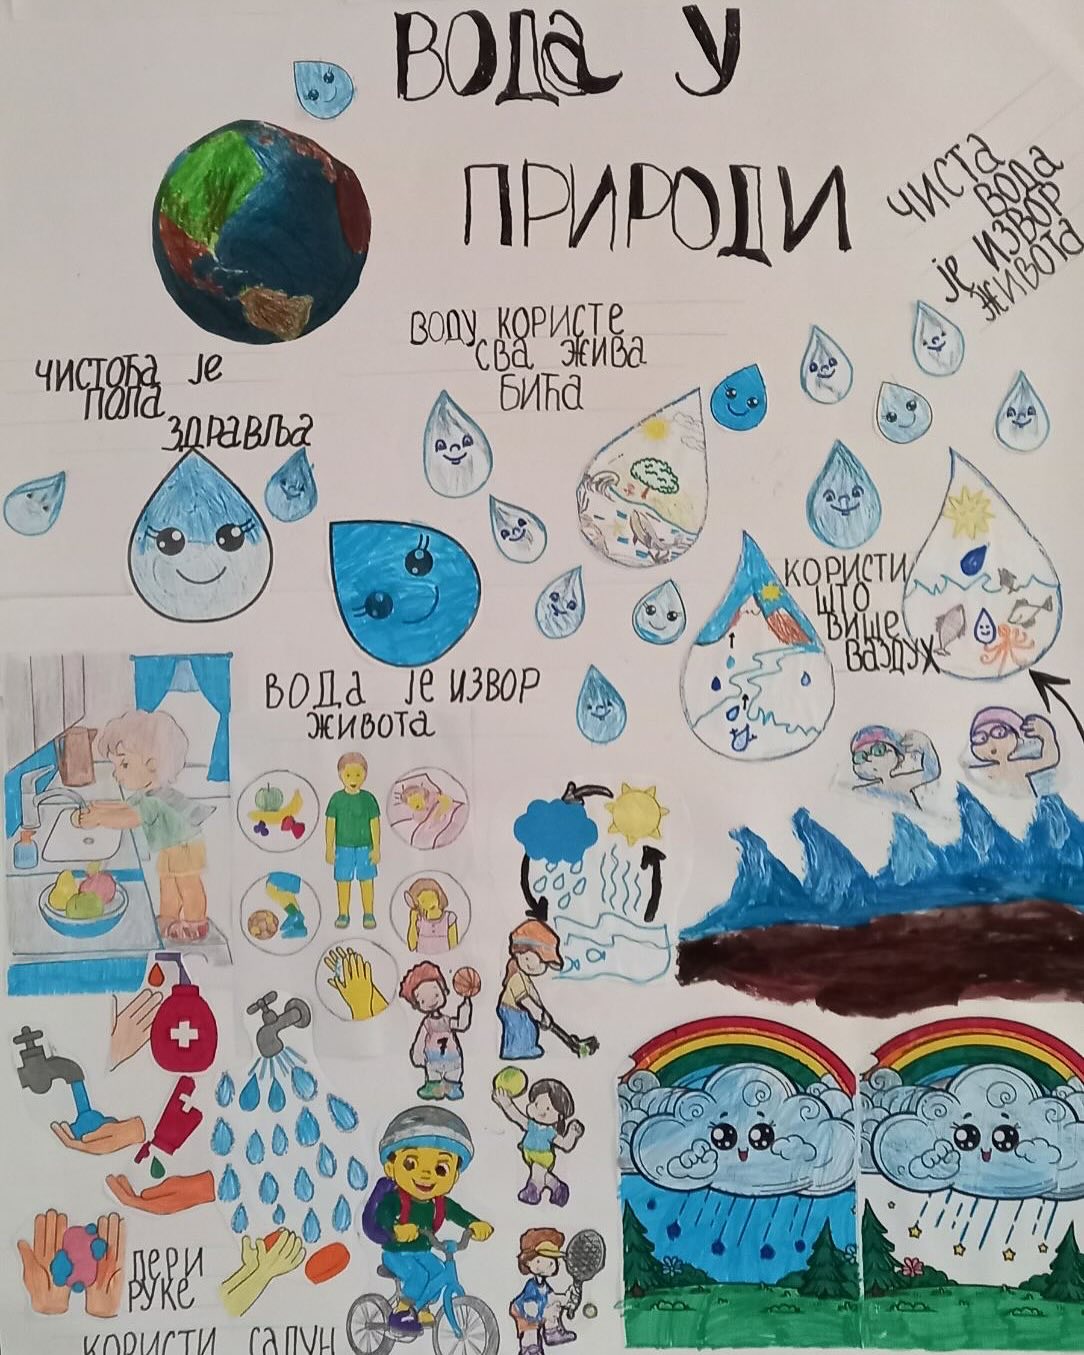 ВОДА У
ПРИРОДИ
ЧИСТА
ВОДА
ЈЕ ИЗВОР
ЖИВОТА
ВОДУ КОРИСТЕ
СВА ЖИВА
БИЋА
ЧИСТОЂА ЈЕ
ПОЛА
ЗДРАВЉА
КОРИСТИ
ШТО
ВИШЕ
ВАЗДУХ
ВОДА ЈЕ ИЗВОР
ЖИВОТА
ПЕРИ
РУКЕ
КОРИСТИ САПУН